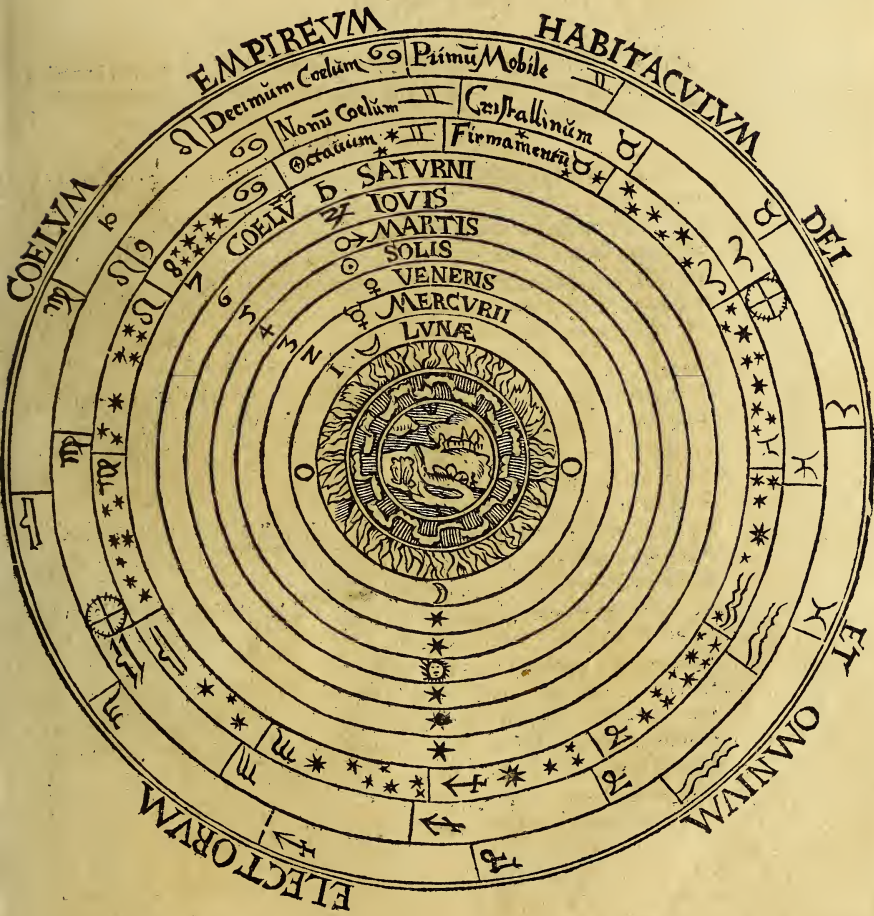 COELVM EMPIREVM HABITACVLVM DEI ET OMNIVM ELECTORVM
Decimum Coelum ♋ Primũ Mobile ♊
Nonũ Coelum ♊ Cristallinum ♉
Octauum ♊ Firmamentũ ♉
COELṼ ♄ SATVRNI
♃ IOVIS
♂ MARTIS
☉ SOLIS
♀ VENERIS
☿ MERCVRII
☽ LVNÆ
8
7
6
5
4
3
2
1